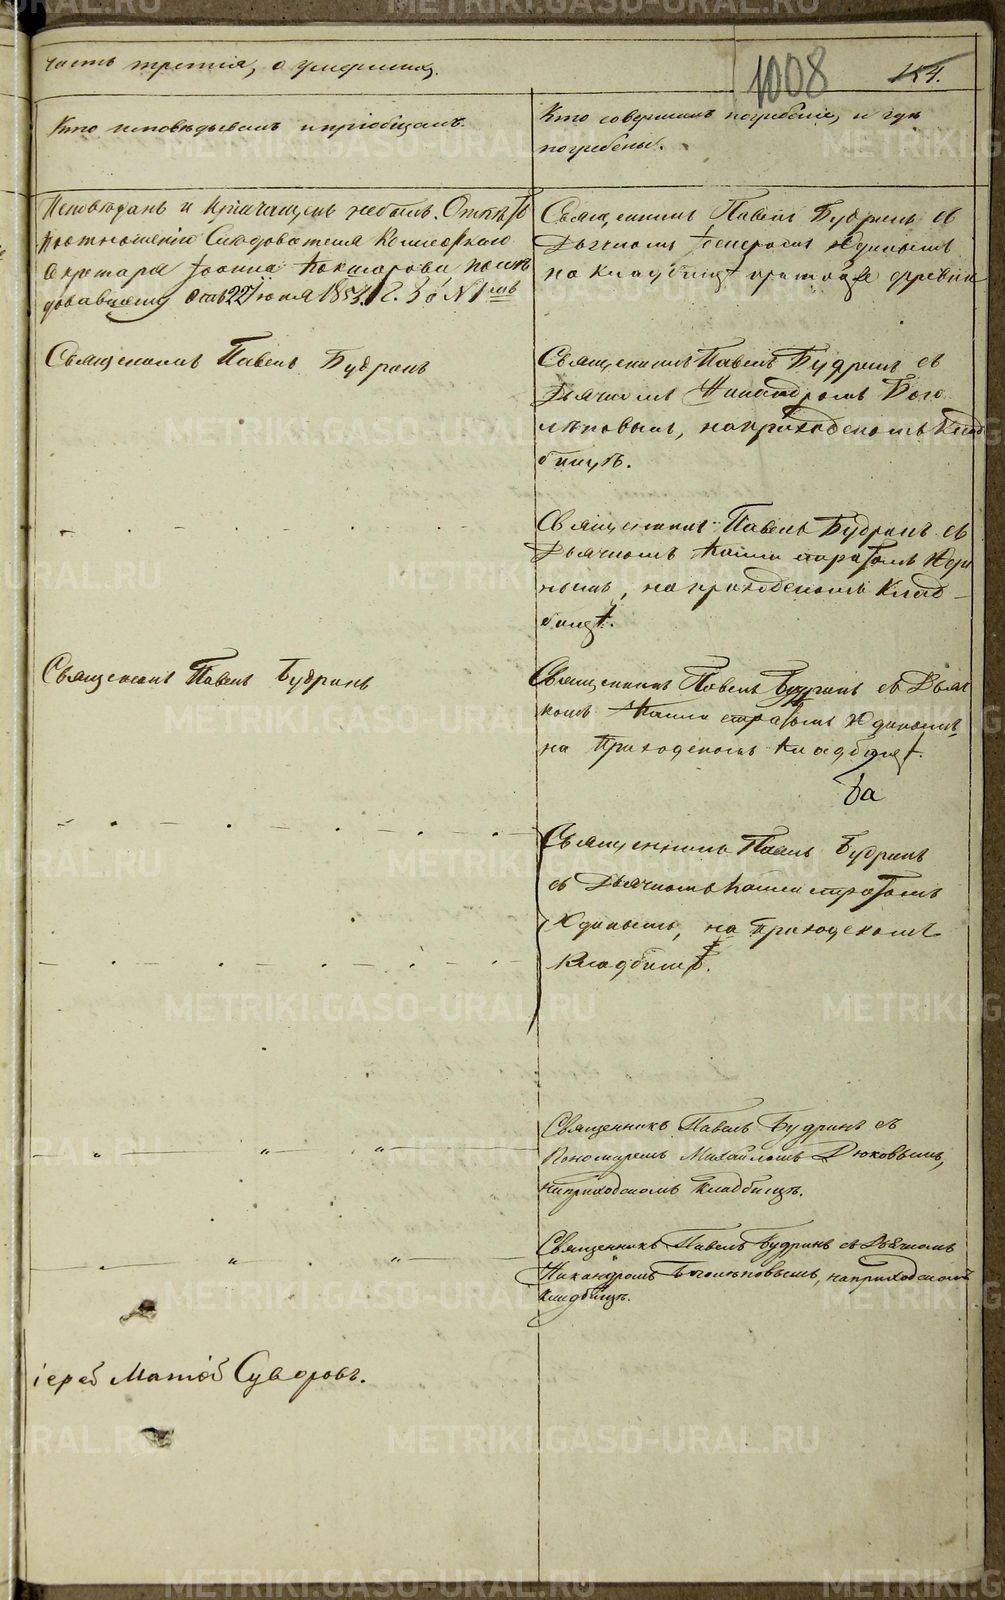 часть третія, о умершихъ.
1008
154.
Кто исповѣдывалъ и пріобщалъ.
Кто совершалъ погребеніе, и гдѣ
погребены.
Исповѣданъ и Причащенъ небылъ. Отпѣтъ
По отношенію Слѣдователя
Секретаря Іоанна послѣ
довавшему отъ 22 Іюля 1853 Г. за № 1мъ
Священникъ Павелъ Будринъ съ
Дьячкомъ Юдинымъ
на кладбищѣ деревни
Священникъ Павелъ Будринъ
Священникъ Павелъ Будринъ съ
Дьячкомъ Никандромъ Бого
лѣповымъ, на приходскомъ Клад
бищѣ.
Священникъ Павелъ Будринъ съ
Дьячкомъ Каллистратомъ Юди
нымъ, на приходскомъ Клад
бищѣ.
Священникъ Павелъ Будринъ
Священникъ Павелъ Будринъ съ Дьяч
комъ Каллистратомъ Юдинымъ,
на Приходскомъ Кладбищѣ.
Священникъ Павелъ Будринъ
съ Дьячкомъ Каллистратомъ
Юдинымъ, на Приходскомъ
Кладбищѣ.
Священникъ Павелъ Будринъ съ
Пономаремъ Михайломъ Дюковымъ,
на приходскомъ кладбищѣ.
Священникъ Павелъ Будринъ съ Дьячкомъ
Никандромъ Боголѣповымъ, на приходскомъ
кладбищѣ.
іерей Матѳій Суворовъ.
METRIKI.GASO-URAL.RU